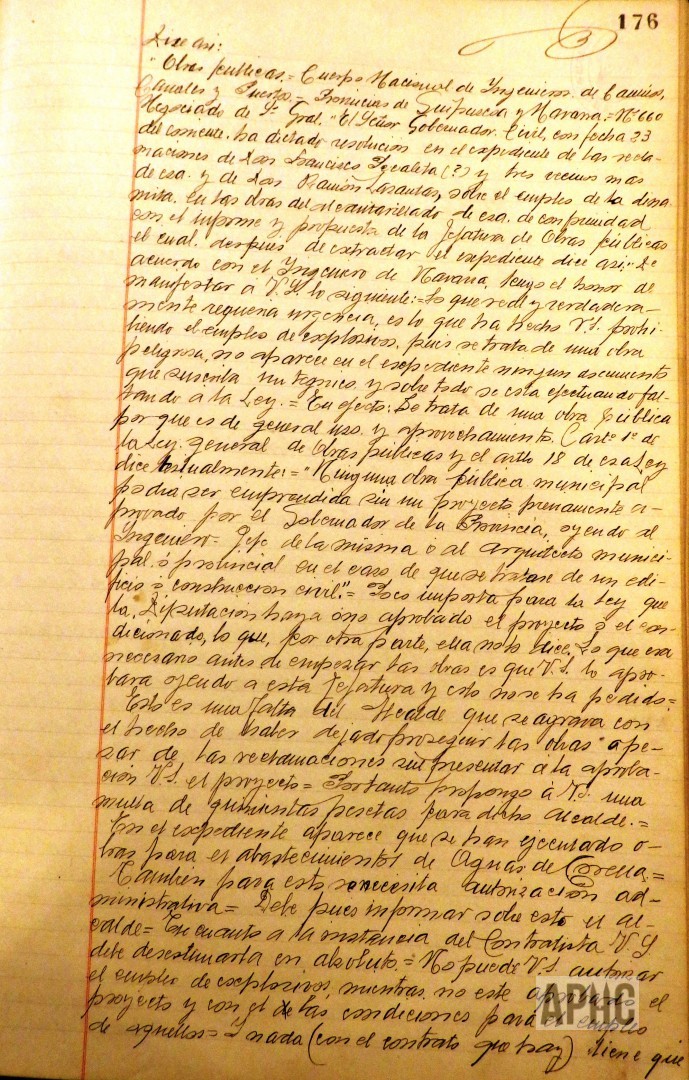 176
Dice asi:
"Obras publicas.= Cuerpo Nacional de Ingenieros de Caminos,
Canales y Puertos.= Provincias de Guipuscoa y Navarra.=Nº 660
Negociado de Sº Gral. "El Señor Gobernador Civil, con fecha 23
del corriente, ha dictado resolucion en el expediente de las recla-
maciones de Don Francisco (?) y tres vecinos mas
de esa, y de Don Ramón sobre el empleo de la dina-
mita en las obras del alcantarillado de esa, de conformidad
con el informe y propuesta de la Jefatura de Obras públicas
el cual, despues de extractar el expediente dice asi: "De
acuerdo con el Ingeniero de Navarra, tengo el honor de
manifestar á V.S. lo siguiente:=Lo que real y verdadera-
mente requeria urgencia, es lo que ha hecho V.S. prohi-
biendo el empleo de explosivos, pues se trata de una obra
peligrosa, no aparece en el expediente ningun documento
que suscriba un tecnico y sobre todo se esta efectuando fal-
tando a la Ley.= En efecto: Se trata de una obra pública
porque es de general uso y aprovechamiento. Carto 1º de
la Ley general de Obras públicas y el artlo 18 de esa Ley
dice testualmente:= "Ninguna obra pública municipal
podrá ser emprendida sin un proyecto previamente a-
probado por el Gobernador de la Provincia, oyendo al
Ingeniero= Jefe de la misma ó al Arquitecto munici-
pal ó provincial en el caso de que se tratase de un edi-
ficio ó construccion civil."= Poco importa para la Ley que
la Diputación haya ó no aprobado el proyecto ó el con-
dicionado, lo que, por otra parte, ella no lo dice. Lo que era
necesario antes de empezar las obras es que V.S. lo apro-
bara oyendo a esta Jefatura y esto no se ha pedido=
Esto es una falta del Alcalde que se agrava con
el hecho de haber dejado proseguir las obras apè-
sar de las reclamaciones sin presentar a la aproba-
ción V.S. el proyecto= Por tanto propongo á V.S. una
multa de quinientas pesetas para dicho Alcalde.=
En el expediente aparece que se han ejecutado o-
bras para el abastecimientos de Aguas de Corella=
Tambien para esto se necesita autorización ad-
ministrativa= Debe pues informar sobre esto el Al-
calde= En cuanto a la instancia del Contratista V.S
debe desestimarla en absoluto.= No puede V.S. autorizar
el empleo de explosivos mientras no este aprobado el
proyecto y con el de las condiciones para el empleo
de aquellos= Y nada (con el contrato que hay) tiene que
APHC